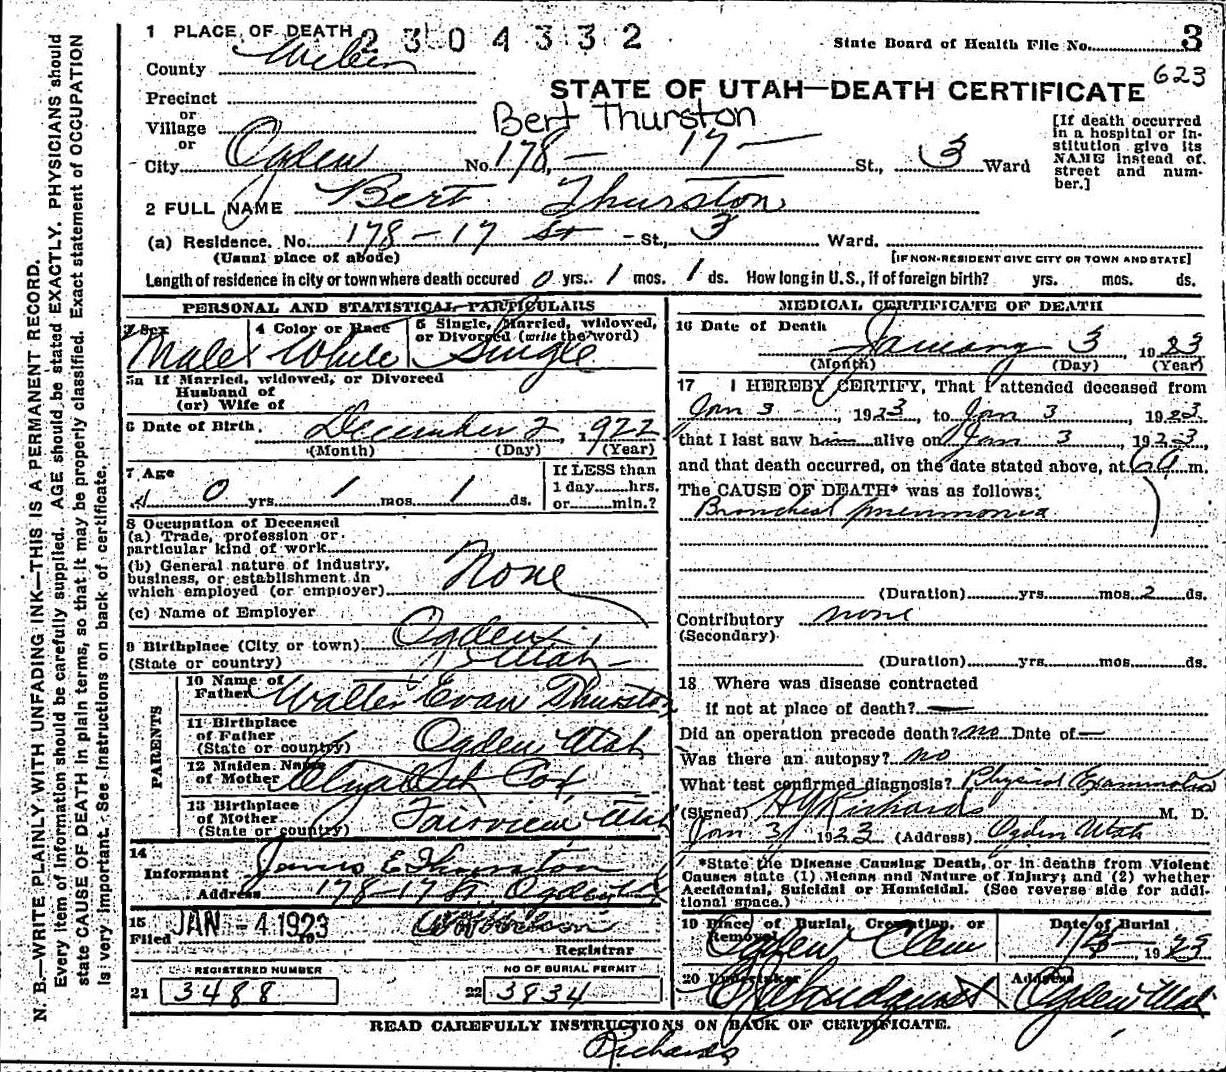 1 PLACE OF DEATH 2304332
State Board of Health File No. 3
623
County Weber
STATE OF UTAH—DEATH CERTIFICATE
Precinct
or
Village
Bert Thurston
[If death occurred in a hospital or institution give its NAME instead of street and number.]
or
City Ogden No. 178 — 17 — St., 3 Ward
2 FULL NAME Bert Thurston
(a) Residence. No. 178 — 17 St — St., 3 Ward.
(Usual place of abode) [IF NON-RESIDENT GIVE CITY OR TOWN AND STATE]
Length of residence in city or town where death occured 0 yrs. 1 mos. 1 ds. How long in U.S., if of foreign birth? yrs. mos. ds.
PERSONAL AND STATISTICAL PARTICULARS
3 Sex Male
4 Color or Race White
5 Single, Married, widowed, or Divorced (write the word) Single
5a If Married, widowed, or Divorced
Husband of
(or) Wife of
6 Date of Birth. December 2, 1922
(Month) (Day) (Year)
7 Age 0 yrs. 1 mos. 1 ds.
If LESS than
1 day hrs.
or min.?
8 Occupation of Deceased
(a) Trade, profession or
particular kind of work
(b) General nature of industry,
business, or establishment in
which employed (or employer) None
(c) Name of Employer
9 Birthplace (City or town) Ogden
(State or country) Utah
PARENTS
10 Name of Father Walter Evan Thurston
11 Birthplace of Father (State or country) Ogden Utah
12 Maiden Name of Mother Cox
13 Birthplace of Mother (State or country) Fairview Utah
14
Informant James E Thurston
Address 178-17 St. Ogden
15 Filed JAN - 4 1923 19
Registrar
REGISTERED NUMBER
21 3488
NO OF BURIAL PERMIT
22 3834
MEDICAL CERTIFICATE OF DEATH
16 Date of Death January 3 1923
(Month) (Day) (Year)
17 I HEREBY CERTIFY, That I attended deceased from
Jan 3 1923, to Jan 3 1923
that I last saw him alive on Jan 3 1923,
and that death occurred, on the date stated above, at 6 a m.
The CAUSE OF DEATH* was as follows:
Bronchial pneumonia
(Duration) yrs. mos. 2 ds.
Contributory none
(Secondary)
(Duration) yrs. mos. ds.
18 Where was disease contracted
if not at place of death? —
Did an operation precede death? no Date of —
Was there an autopsy? no
What test confirmed diagnosis? Physical Examination
(Signed) Richards M. D.
Jan 3/ 1923 (Address) Ogden Utah
*State the Disease Causing Death, or in deaths from Violent
Causes state (1) Means and Nature of Injury; and (2) whether
Accidental, Suicidal or Homicidal. (See reverse side for addi-
tional space.)
19 Place of Burial, Cremation, or Removal Ogden Cem
Date of Burial 1/5 1923
20 Undertaker
Address Ogden Utah
READ CAREFULLY INSTRUCTIONS ON BACK OF CERTIFICATE.
Richards
N. B.—WRITE PLAINLY WITH UNFADING INK—THIS IS A PERMANENT RECORD.
Every item of information should be carefully supplied. AGE should be stated EXACTLY. PHYSICIANS should
state CAUSE OF DEATH in plain terms, so that it may be properly classified. Exact statement of OCCUPATION
is very important. See instructions on back of certificate.